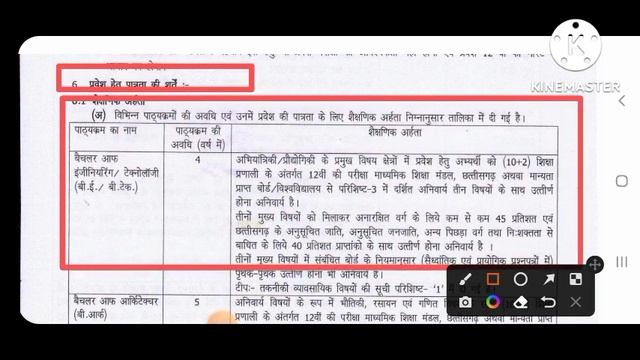 6. प्रवेश हेतु पात्रता की शर्तें :-
6.1 शैक्षणिक अर्हता
(अ) विभिन्न पाठ्यक्रमों की अवधि एवं उनमें प्रवेश की पात्रता के लिए शैक्षणिक अर्हता निम्नानुसार तालिका में दी गई है।
पाठ्यक्रम का नाम पाठ्यक्रम की अवधि (वर्ष में) शैक्षणिक अर्हता
बैचलर आफ इंजीनियरिंग/ टेक्नोलॉजी (बी.ई./ बी.टेक.) 4
अभियांत्रिकी/प्रौद्योगिकी के प्रमुख विषय क्षेत्रों में प्रवेश हेतु अभ्यर्थी को (10+2) शिक्षा
प्रणाली के अंतर्गत 12वीं की परीक्षा माध्यमिक शिक्षा मंडल, छत्तीसगढ़ अथवा मान्यता
प्राप्त बोर्ड/विश्वविद्यालय से परिशिष्ट-3 में दर्शित अनिवार्य तीन विषयों के साथ उत्तीर्ण
होना अनिवार्य है।
तीनों मुख्य विषयों को मिलाकर अनारक्षित वर्ग के लिये कम से कम 45 प्रतिशत एवं
छत्तीसगढ़ के अनुसूचित जाति, अनुसूचित जनजाति, अन्य पिछड़ा वर्ग तथा निःशक्तता से
बाधित के लिए 40 प्रतिशत प्राप्तांको के साथ उत्तीर्ण होना अनिवार्य है ।
तीनों मुख्य विषयों में संबंधित बोर्ड के नियमानुसार (सैध्दांतिक एवं प्रायोगिक प्रश्नपत्रों में)
पृथक-पृथक उत्तीर्ण होना भी अनिवार्य है।
टीपः- तकनीकी व्यावसायिक विषयों की सूची परिशिष्ट- '1' में
बैचलर आफ आर्किटेक्चर (बी.आर्फ) 5
अनिवार्य विषयों के रूप में भौतिकी, रसायन एवं गणित
प्रणाली के अंतर्गत 12वीं की परीक्षा माध्यमिक शिक्षा मंडल, छत्तीसगढ़ अथवा मान्यता प्राप्त
KINEMASTER